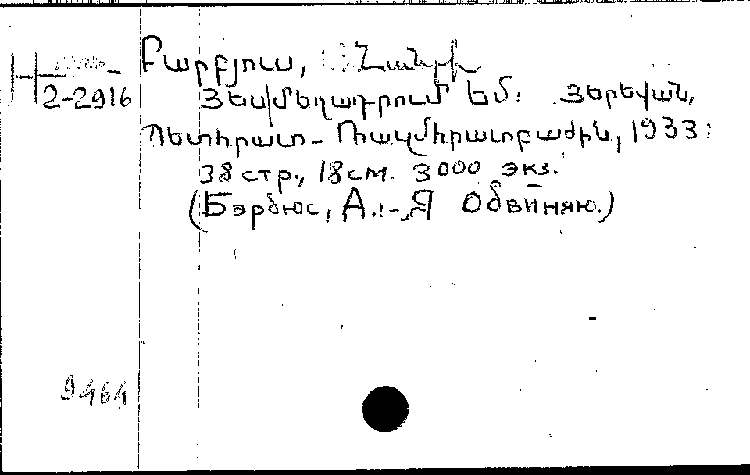 Բարբյուս, Հանրի
Н
2-2916
Յես մեղադրում եմ: Յերեվան,
Պետհրատ- Ռազմհրատբաժին, 1933:
38 стр., 18 см. 3000 экз.
(Барбюс, А. :-Я Обвиняю.)
9464